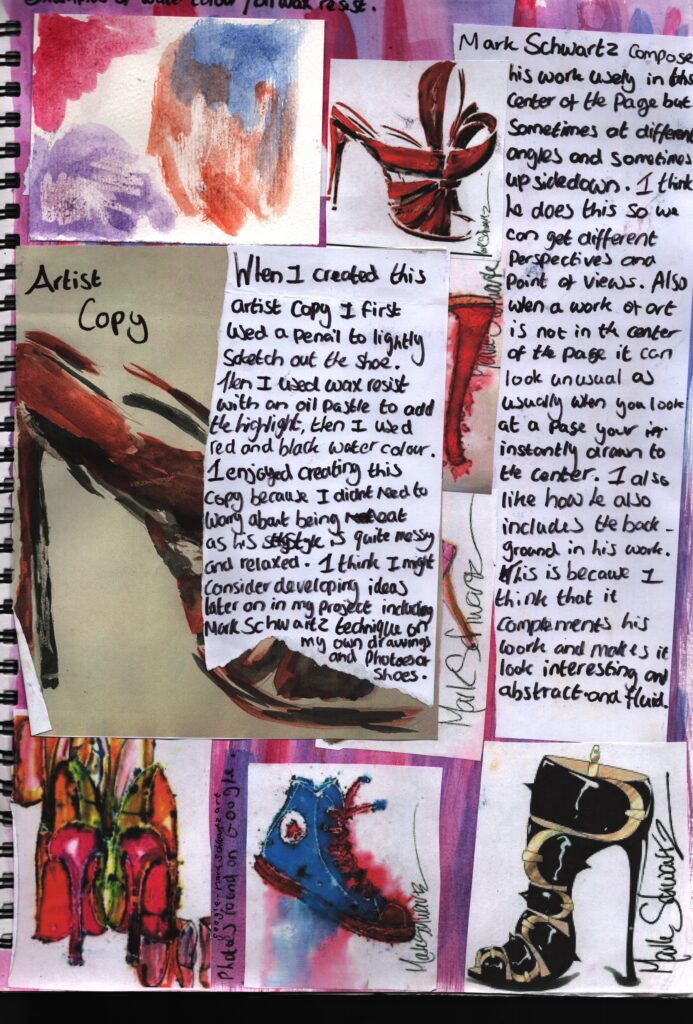 Examples of water colour / oil wax resist.
Mark Schwartz Compose
his work usely in the
center of the Page but
Sometimes at different
angles and sometimes
upsidedown. I think
he does this so we
can get different
Perspectives and
Point of views. Also
when a work of art
is not in the center
of the page it can
look unusual as
usually when you look
at a page your
instantly drawn to
the center. I also
like how he also
includes the back-
ground in his work.
This is because I
think that it
complements his
work and makes it
look interesting and
abstract and fluid.
Artist
Copy
When I created this
artist Copy I first
Used a pencil to lightly
Sketch out the shoe.
Then I used wax resist
with an oil pastle to add
the highlight, then I used
red and black water colour.
I enjoyed creating this
copy because I didnt need to
worry about being neat
as his style is quite messy
and relaxed. I think I might
Consider developing ideas
later on in my project including
Mark Schwartz technique on
my own drawings
and Photos
Shoes.
Mark Schwartz
Mark Schwartz
google - mark schwartz art
Photos found on Google.
Mark Schwartz
Mark Schwartz